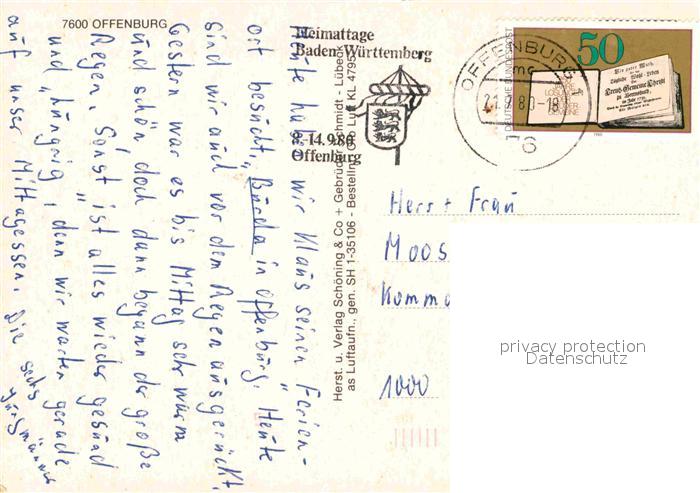 7600 OFFENBURG
Heute haben wir Klaus seinen Ferien-
ort besucht, „Burda" in Offenburg. Heute
sind wir auch vor dem Regen ausgerückt.
Gestern war es bis Mittag sehr warm
und schön, doch dann begann der große
Regen. Sonst ist alles wieder gesund
und „hungrig", denn wir warten gerade
auf unser Mittagessen. Die sechs
Herst. u. Verlag Schöning & Co + Gebrüder Schmidt - Lübeck
as Luftaufn., gen. SH 1-35106 - Bestellnr.
Luft KL 4795
Heimattage
Baden-Württemberg
8.-14.9.80
Offenburg
OFFENBURG 1
21.7.80-18
76
DEUTSCHE BUNDESPOST
50
1980
Herr + Frau
Moos
Komma
1000
privacy protection
Datenschutz